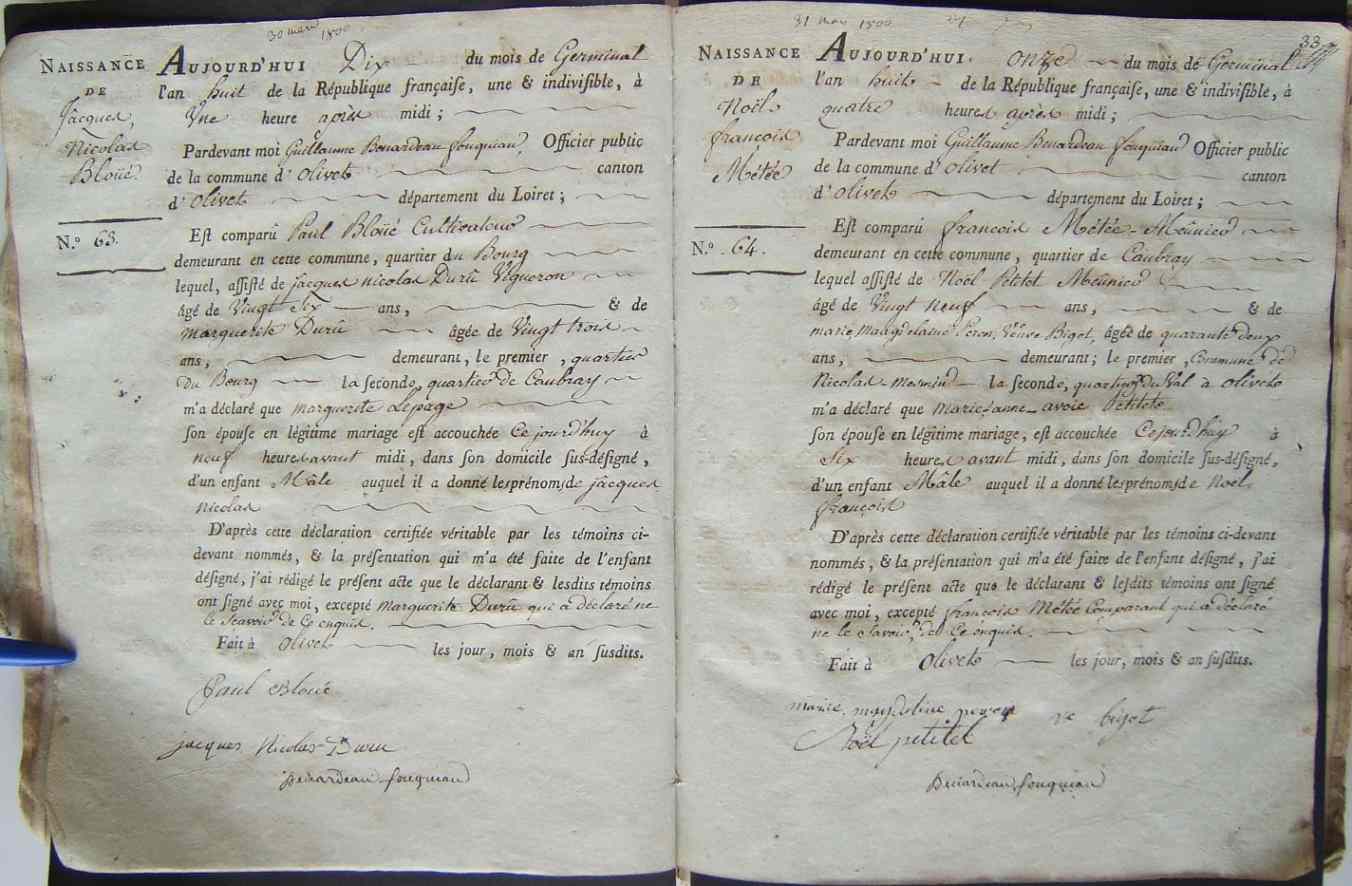 30 mars 1800
NAISSANCE
DE
Jacques,
Nicolas
Bloüé
N.° 63.
AUJOURD'HUI Dix du mois de Germinal
l'an huit de la République française, une & indivisible, à
Une heure après midi ;
Pardevant moi Guillaume Benardeau fouquiau Officier public
de la commune d' Olivet canton
d' Olivet département du Loiret ;
Est comparû Paul Bloüé Cultivateur
demeurant en cette commune, quartier du Bourg
lequel, assisté de jacques nicolas Durû Vigneron
âgé de Vingt Six ans, & de
marguerite Durû âgée de Vingt trois
ans, demeurant, le premier, quartier
du Bourg la seconde, quartier de Caubray
m'a déclaré que marguerite Lepage
son épouse en légitime mariage est accouchée Ce jourd'huy à
neuf heures avant midi, dans son domicile sus-désigné,
d'un enfant Mâle auquel il a donné les prénoms de jacques
nicolas
D'après cette déclaration certifiée véritable par les témoins ci-
devant nommés, & la présentation qui m'a été faite de l'enfant
désigné, j'ai rédigé le présent acte que le déclarant & lesdits témoins
ont signé avec moi, excepté marguerite Durû qui a déclaré ne
le Scavoir de Ce enquis.
Fait à Olivet les jour, mois & an susdits.
Paul Bloué
jacques Nicolas Duru
Benardeau fouquiau
31 mars 1800
33
NAISSANCE
DE
Noël
françois
Métée
N.° 64.
AUJOURD'HUI onze du mois de Germinal
l'an huit de la République française, une & indivisible, à
quatre heures après midi ;
Pardevant moi Guillaume Benardeau fouquiau Officier public
de la commune d' Olivet canton
d' Olivet département du Loiret ;
Est comparû françois Métée Meûnier
demeurant en cette commune, quartier de Caubray
lequel assisté de Noël Petitet Meûnier
âgé de Vingt neuf ans, & de
marie, Magdelaine Peron, Veuve Bigot, âgée de quarante deux
ans, demeurant ; le premier, Commune de
Nicolas mesmin la seconde, quartier du Val à olivet
m'a déclaré que marie-anne-avoie Petitet
son épouse en légitime mariage, est accouchée Ce jourd'huy à
Six heures avant midi, dans son domicile sus-désigné,
d'un enfant Mâle auquel il a donné les prénoms de Noël
françois
D'après cette déclaration certifiée véritable par les témoins ci-devant
nommés, & la présentation qui m'a été faite de l'enfant désigné, j'ai
rédigé le présent acte que le déclarant & lesdits témoins ont signé
avec moi, excepté françois Métée Comparant qui a déclaré
ne le Savoir de Ce enquis.
Fait à Olivet les jour, mois & an susdits.
marie, magdeline peron ve bigot
Noël petitet
Benardeau fouquiau